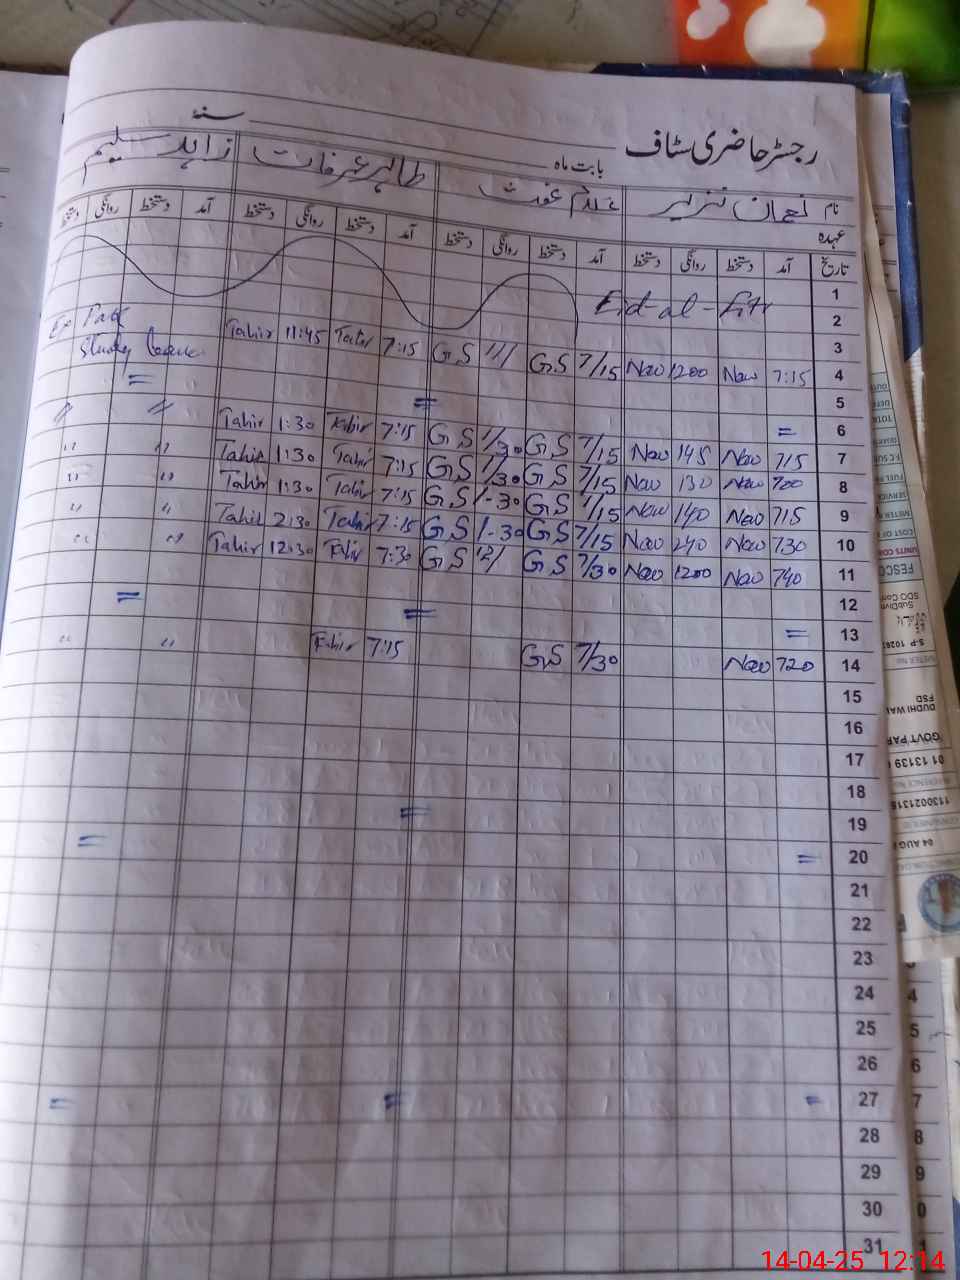 رجسٹر حاضری سٹاف
بابت ماہ سنہ
نام نعمان نذیر غلام غوث طاہر عرفات زاہد سلیم
عہدہ
تاریخ آمد دستخط روانگی دستخط آمد دستخط روانگی دستخط آمد دستخط روانگی دستخط آمد دستخط روانگی دستخط
1 Eid-al-Fitr
2
3
Study leave Tahir 11:45 Tahir 7:15 G.S 11/ G.S 7/15 Nao 1200 Nao 7:15 4
= = 5
〃 〃 Tahir 1:30 Tahir 7:15 G.S 1/30 G.S 7/15 = 6
〃 〃 Tahir 1:30 Tahir 7:15 G.S 1/30 G.S 7/15 Nao 145 Nao 715 7
〃 〃 Tahir 1:30 Tahir 7:15 G.S 1-30 G.S 7/15 Nao 130 Nao 700 8
〃 〃 Tahir 2:30 Tahir 7:15 G.S 1-30 G.S 7/15 Nao 140 Nao 715 9
〃 〃 Tahir 12:30 Tahir 7:30 G.S 12/ G.S 7/30 Nao 240 Nao 730 10
Nao 1200 Nao 740 11
= = 12
= 13
〃 〃 Tahir 7:15 G.S 7/30 Nao 720 14
15
16
17
18
= 19
= = 20
21
22
23
24
25
26
= = = 27
28
29
30
31
FESCO
SDO Con
SubDivn
DUDHI WAL
FSD
GOVT PAR
01 13139
1130021315
04 AUG
4
5
6
7
8
9
0
1
14-04-25 12:14